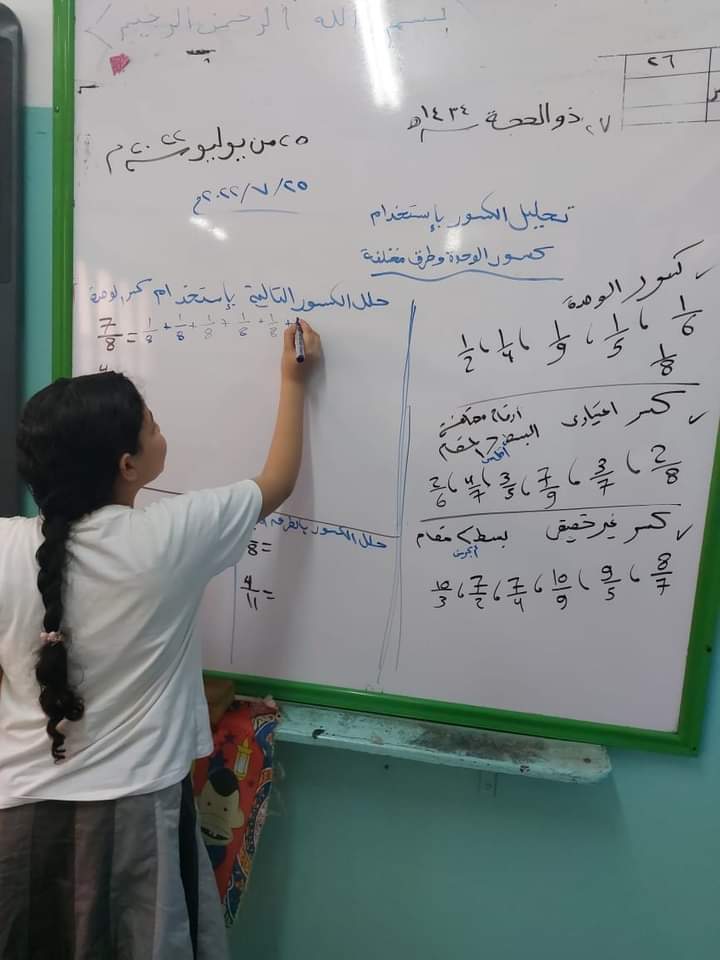 بسم الله الرحمن الرحيم
٢٦
٢٧ ذو الحجة ١٤٣٤هـ
٢٥ من يوليو ٢٠٢٢م
٢٥/٧/٢٠٢٢م
تحليل الكسور بإستخدام
كسور الوحدة وطرق مختلفة
حلل الكسور التالية بإستخدام كسر الوحدة
7/8 = 1/8 + 1/8 + 1/8 + 1/8 + 1/8 +
4
حلل الكسور بالطرق
8 =
4/11 =
✓ كسور الوحدة
1/6 ، 1/5 ، 1/9 ، 1/4 ، 1/2
1/8
✓ كسر اعتيادي
البسط > المقام
أقل من
2/8 ، 3/7 ، 7/9 ، 3/5 ، 4/7 ، 2/6
✓ كسر غير حقيقي بسط < مقام
أكبر من
8/7 ، 9/5 ، 10/9 ، 7/4 ، 7/2 ، 10/3